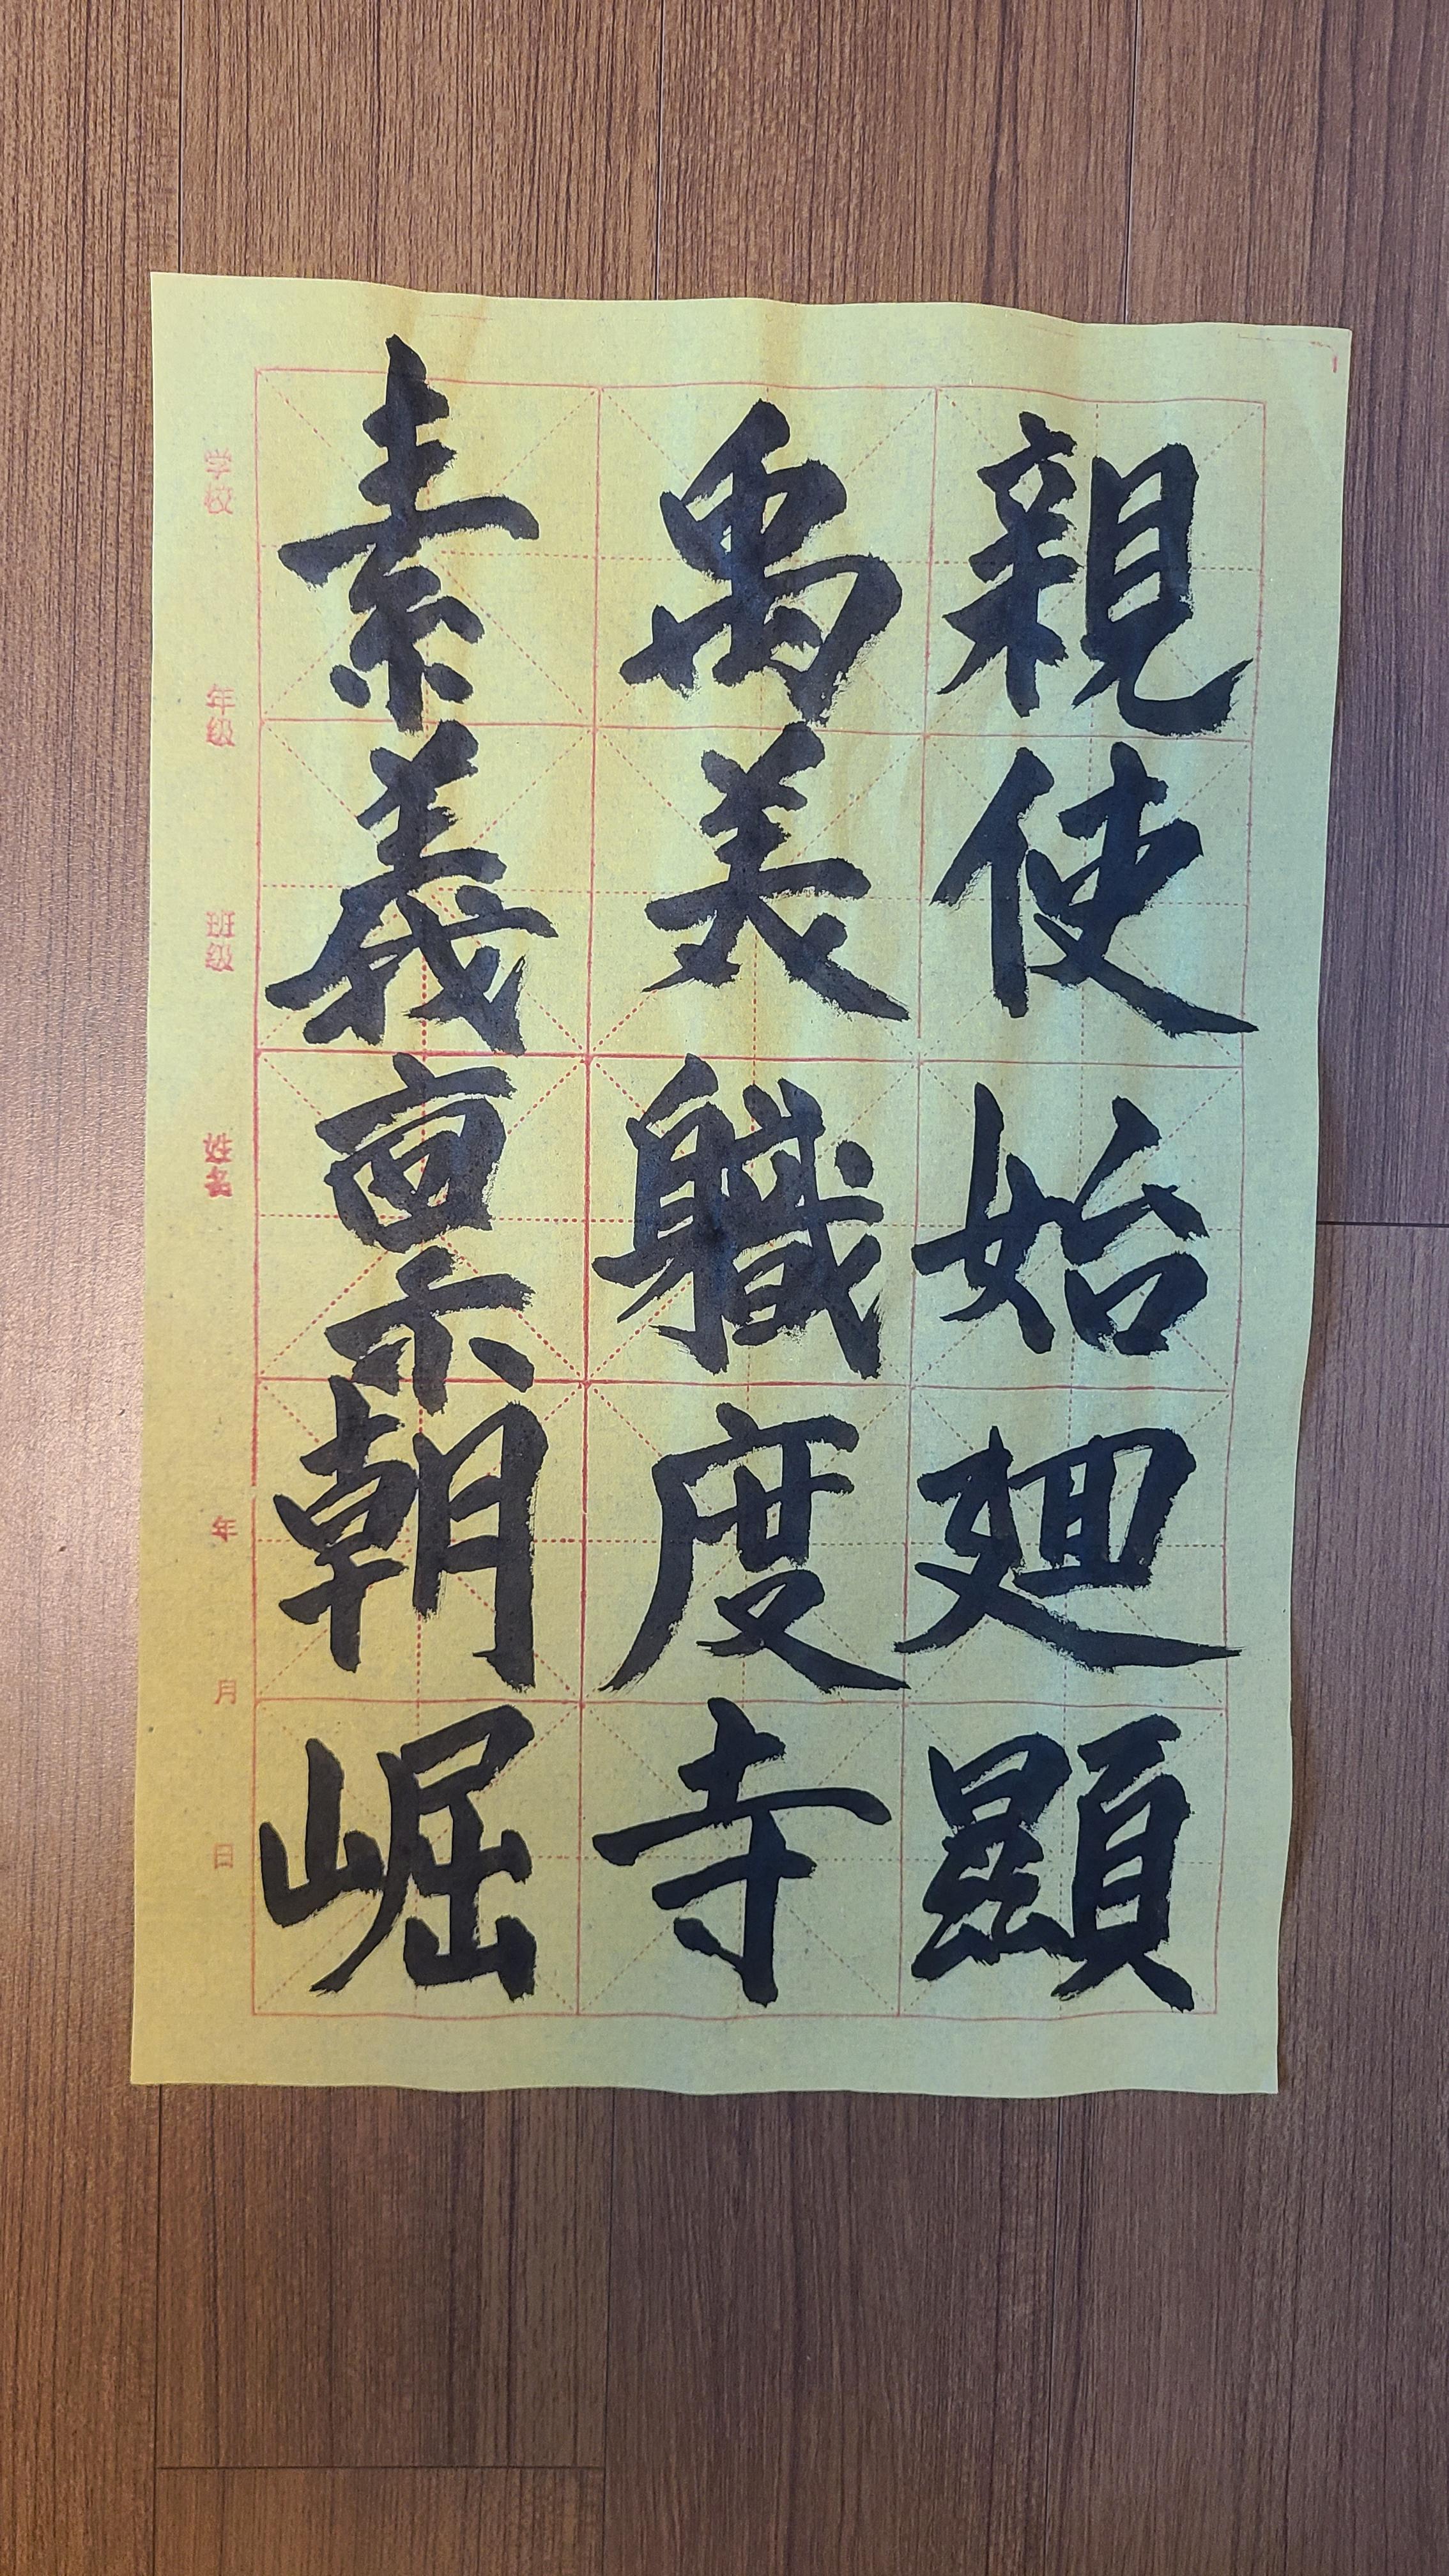 親使始廻顕
禹美職度寺
素義稟朝崛
学校 年级 班级 姓名 年 月 日